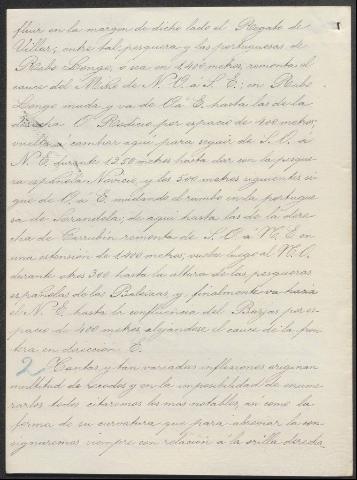 fluir en la margen de dicho lado el Regato de
Villar; entre tal pesquera y las portuguesas de
Rabo Longo, ó sea en 1,400 metros, remonta el
cauce del Miño de N. O. á S. E.; en Rabo
Longo muda y va de O. á E. hasta las de la
derecha O' Rodicio, por espacio de 400 metros;
vuelve á cambiar aquí para seguir de S. O. á
N. E. durante 1350 metros hasta dar con la pesque-
ra española Novicio, y los 500 metros siguientes si-
gue de O. á E. mudando el rumbo en la portugue-
sa de Sarandela; de aquí hasta las de la dere-
cha de Carrubin remonta de S. O. á N. E. en
una estensión de 1,400 metros; vuelve luego al N. O.
durante otros 300 hasta la altura de las pesqueras
españolas de las Baleiras y finalmente va hacia
el N. E. hasta la confluencia del Barjas por es-
pacio de 400 metros alejándose el cauce de la fron-
tera en dirección E.
2 Tantas y tan variadas inflexiones originan
multitud de y en la imposibilidad de enume-
rarlos todos citaremos los mas notables, así como la
forma de su curvatura que para abreviar la con-
signaremos siempre con relación á la orilla derecha.